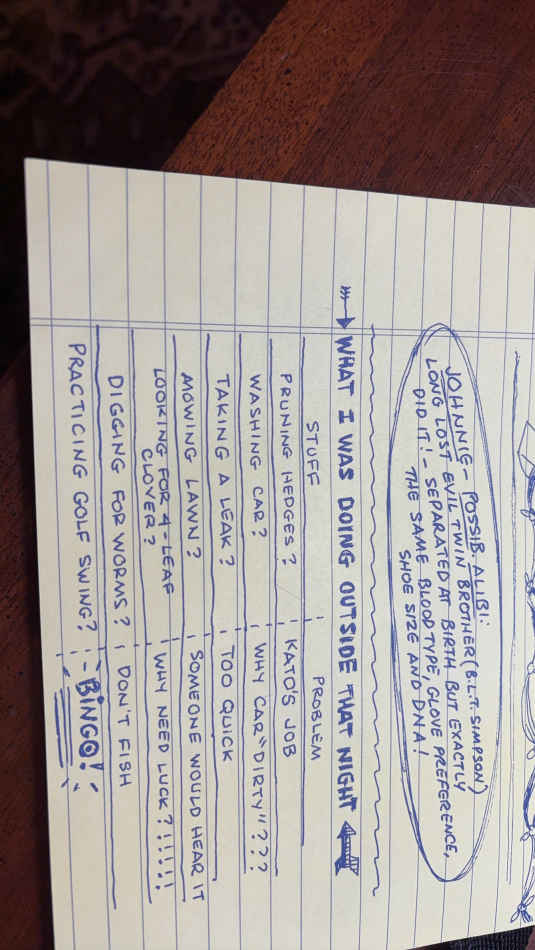 JOHNNIE - POSSIB. ALIBI:
LONG LOST EVIL TWIN BROTHER (B.L.T. SIMPSON)
DID IT! - SEPARATED AT BIRTH BUT EXACTLY
THE SAME BLOOD TYPE, GLOVE PREFERENCE,
SHOE SIZE AND DNA!
WHAT I WAS DOING OUTSIDE THAT NIGHT
STUFF PROBLEM
PRUNING HEDGES? KATO'S JOB
WASHING CAR? WHY CAR "DIRTY"???
TAKING A LEAK? TOO QUICK
MOWING LAWN? SOMEONE WOULD HEAR IT
LOOKING FOR 4-LEAF WHY NEED LUCK?!!!!!
CLOVER?
DIGGING FOR WORMS? DON'T FISH
PRACTICING GOLF SWING? BINGO!